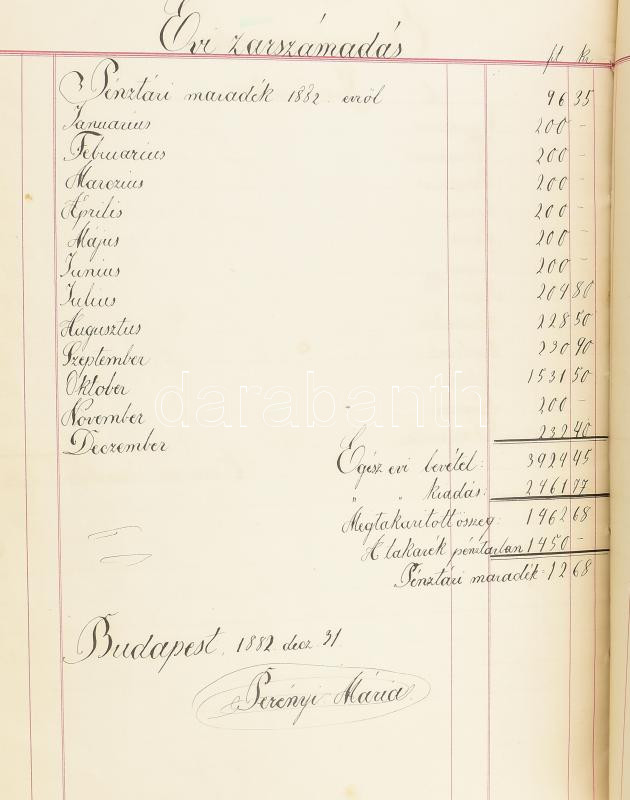 Évi zárszámadás
ft kr
Pénztári maradék 1882 evről 96 35
Januarius 200 –
Februarius 200 –
Marczius 200 –
Április 200 –
Május 200 –
Junius 200 –
Julius 204 80
Augusztus 228 50
Szeptember 230 90
Oktober 1531 50
November 200 –
Deczember 232 40
Egész evi bevétel: 3924 45
" " kiadás: 2461 77
Megtakaritott összeg: 1462 68
A takarék pénztárban 1450 –
Pénztári maradék: 12 68
darabanth
Budapest, 1882 decz 31.
Perényi Mária